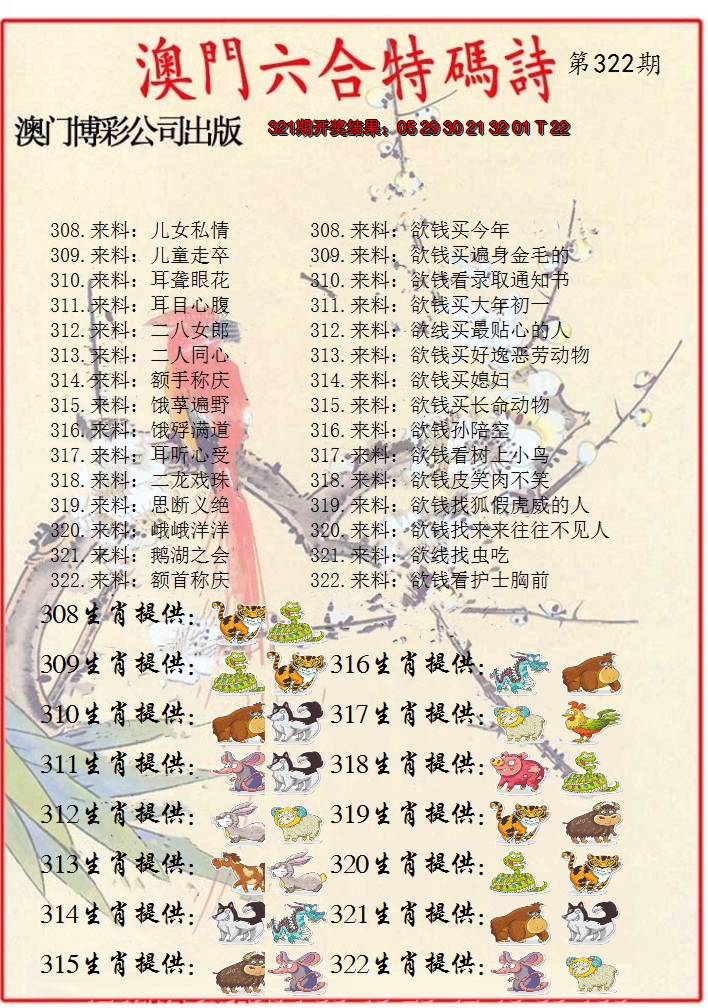 澳門六合特碼詩 第322期
澳门博彩公司出版 321期开奖结果：05 29 30 21 32 01 T 22
308.来料：儿女私情 308.来料：欲钱买今年
309.来料：儿童走卒 309.来料：欲钱买遍身金毛的
310.来料：耳聋眼花 310.来料：欲钱看录取通知书
311.来料：耳目心腹 311.来料：欲钱买大年初一
312.来料：二八女郎 312.来料：欲线买最贴心的人
313.来料：二人同心 313.来料：欲钱买好逸恶劳动物
314.来料：额手称庆 314.来料：欲钱买媳妇
315.来料：饿莩遍野 315.来料：欲钱买长命动物
316.来料：饿殍满道 316.来料：欲钱孙陪空
317.来料：耳听心受 317.来料：欲钱看树上小鸟
318.来料：二龙戏珠 318.来料：欲钱皮笑肉不笑
319.来料：思断义绝 319.来料：欲钱找狐假虎威的人
320.来料：峨峨洋洋 320.来料：欲钱找来来往往不见人
321.来料：鹅湖之会 321.来料：欲线找虫吃
322.来料：额首称庆 322.来料：欲钱看护士胸前
308生肖提供：
309生肖提供： 316生肖提供：
310生肖提供： 317生肖提供：
311生肖提供： 318生肖提供：
312生肖提供： 319生肖提供：
313生肖提供： 320生肖提供：
314生肖提供： 321生肖提供：
315生肖提供： 322生肖提供：